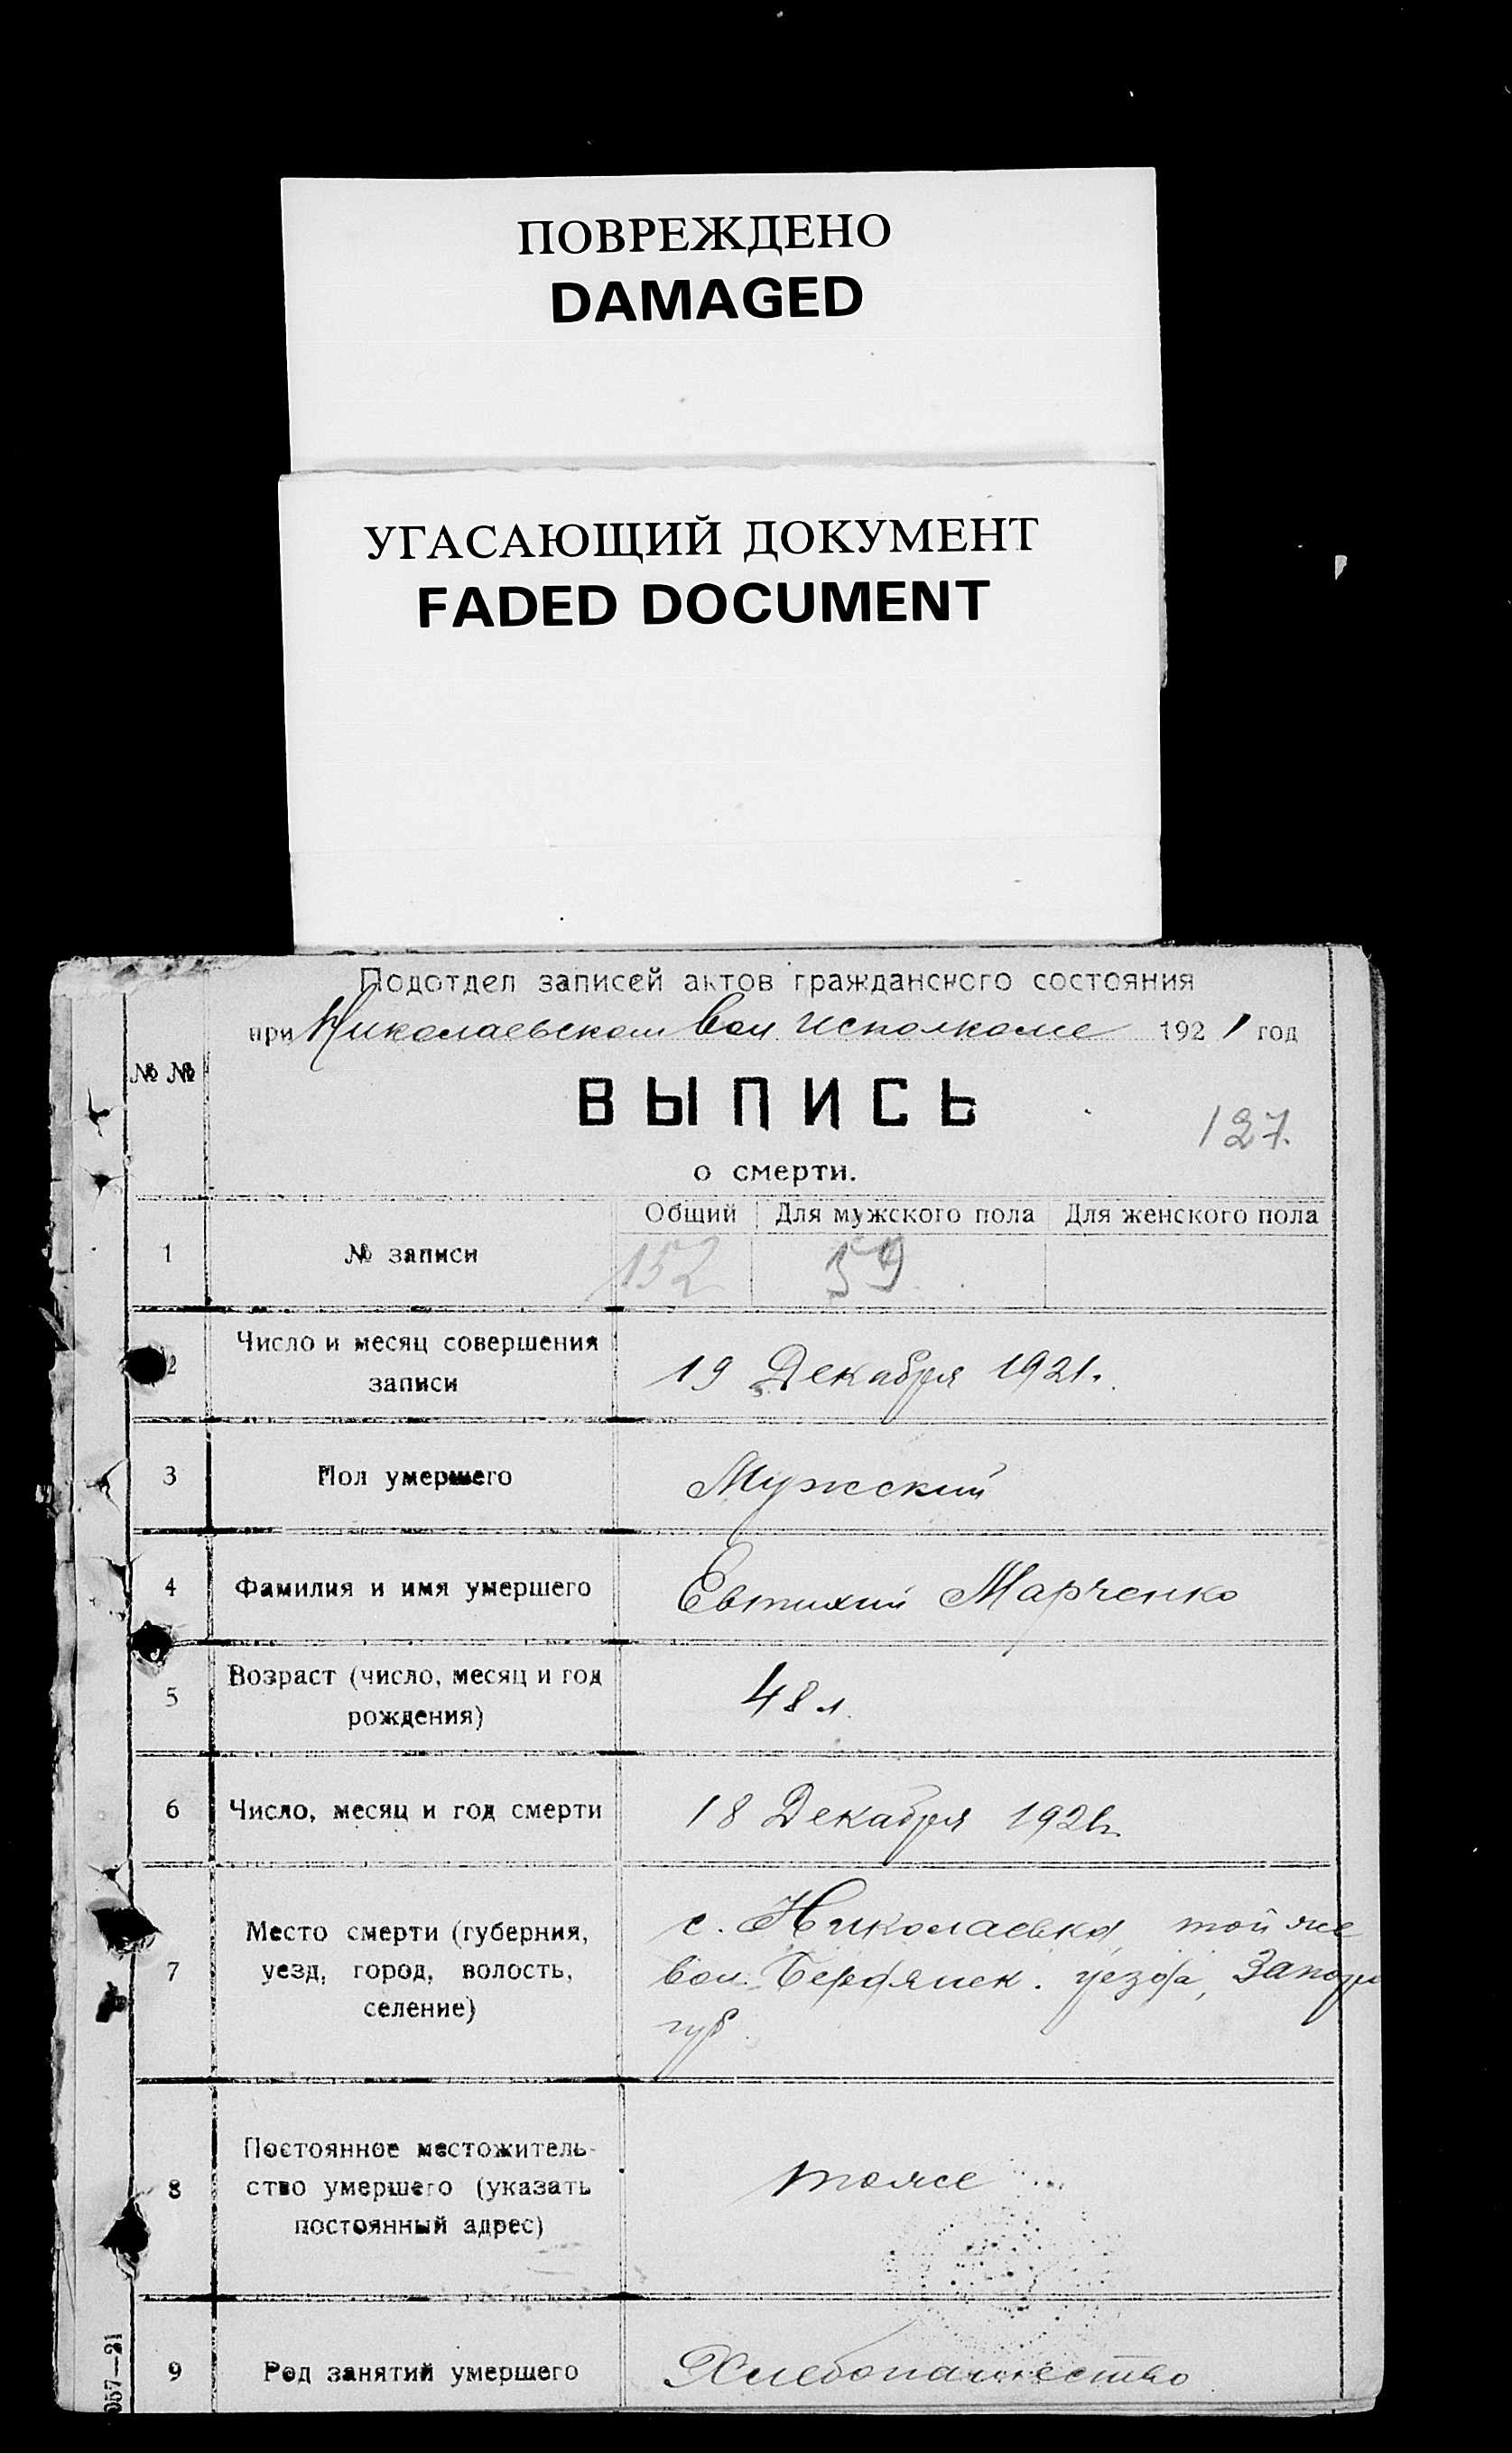 ПОВРЕЖДЕНО
DAMAGED
УГАСАЮЩИЙ ДОКУМЕНТ
FADED DOCUMENT
Подотдел записей актов гражданского состояния
при Николаевском Вол. исполкоме 1921 год
№ №
ВЫПИСЬ
127.
о смерти.
Общий Для мужского пола Для женского пола
1 № записи 152 59
2 Число и месяц совершения
записи
19 Декабря 1921.
3 Пол умершего Мужский
4 Фамилия и имя умершего Евтихий Марченко
5 Возраст (число, месяц и год
рождения)
48 л.
6 Число, месяц и год смерти 18 Декабря 1921г.
7 Место смерти (губерния,
уезд, город, волость,
селение)
с. Николаевка, той же
вол. Бердянск. уезда,
губ.
8 Постоянное местожитель-
ство умершего (указать
постоянный адрес)
тоже
9 Род занятий умершего Хлебопашество
057—21